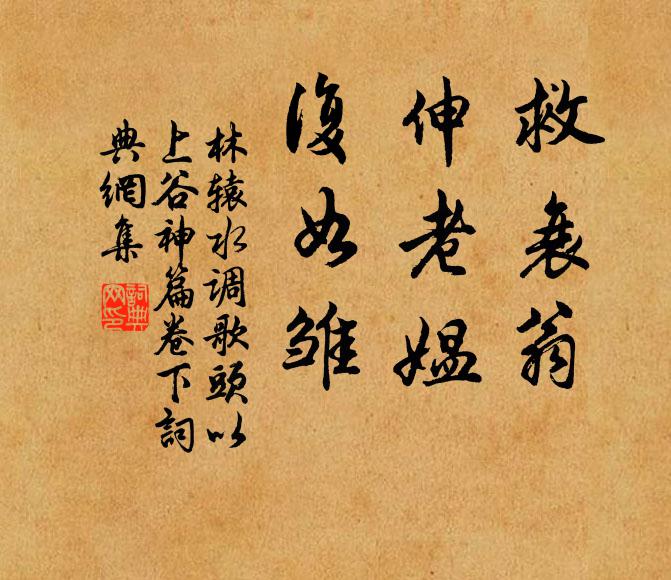 救衰翁
伸老媪
復如雏
林辕水调歌頭以
上谷神篇卷下詞
典網集
詞典
网印